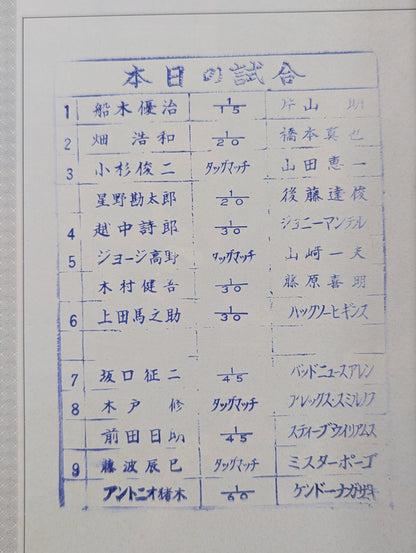 本日の試合
1 船木優治 1/15 片山 明
2 畑 浩和 1/20 橋本真也
3 小杉俊二 タッグマッチ 山田恵一
星野勘太郎 1/20 後藤達俊
4 越中詩郎 1/30 ジョニーマンテル
5 ジョージ高野 タッグマッチ 山崎一夫
木村健吾 1/30 藤原喜明
6 上田馬之助 1/30 ハックソーヒギンス
7 坂口征二 1/45 バッドニュースアレン
8 木戸 修 タッグマッチ アレックス・スミルノフ
前田日明 1/45 スティーブウイリアムス
9 藤波辰巳 タッグマッチ ミスターポーゴ
アントニオ猪木 1/60 ケンドーナガサキ